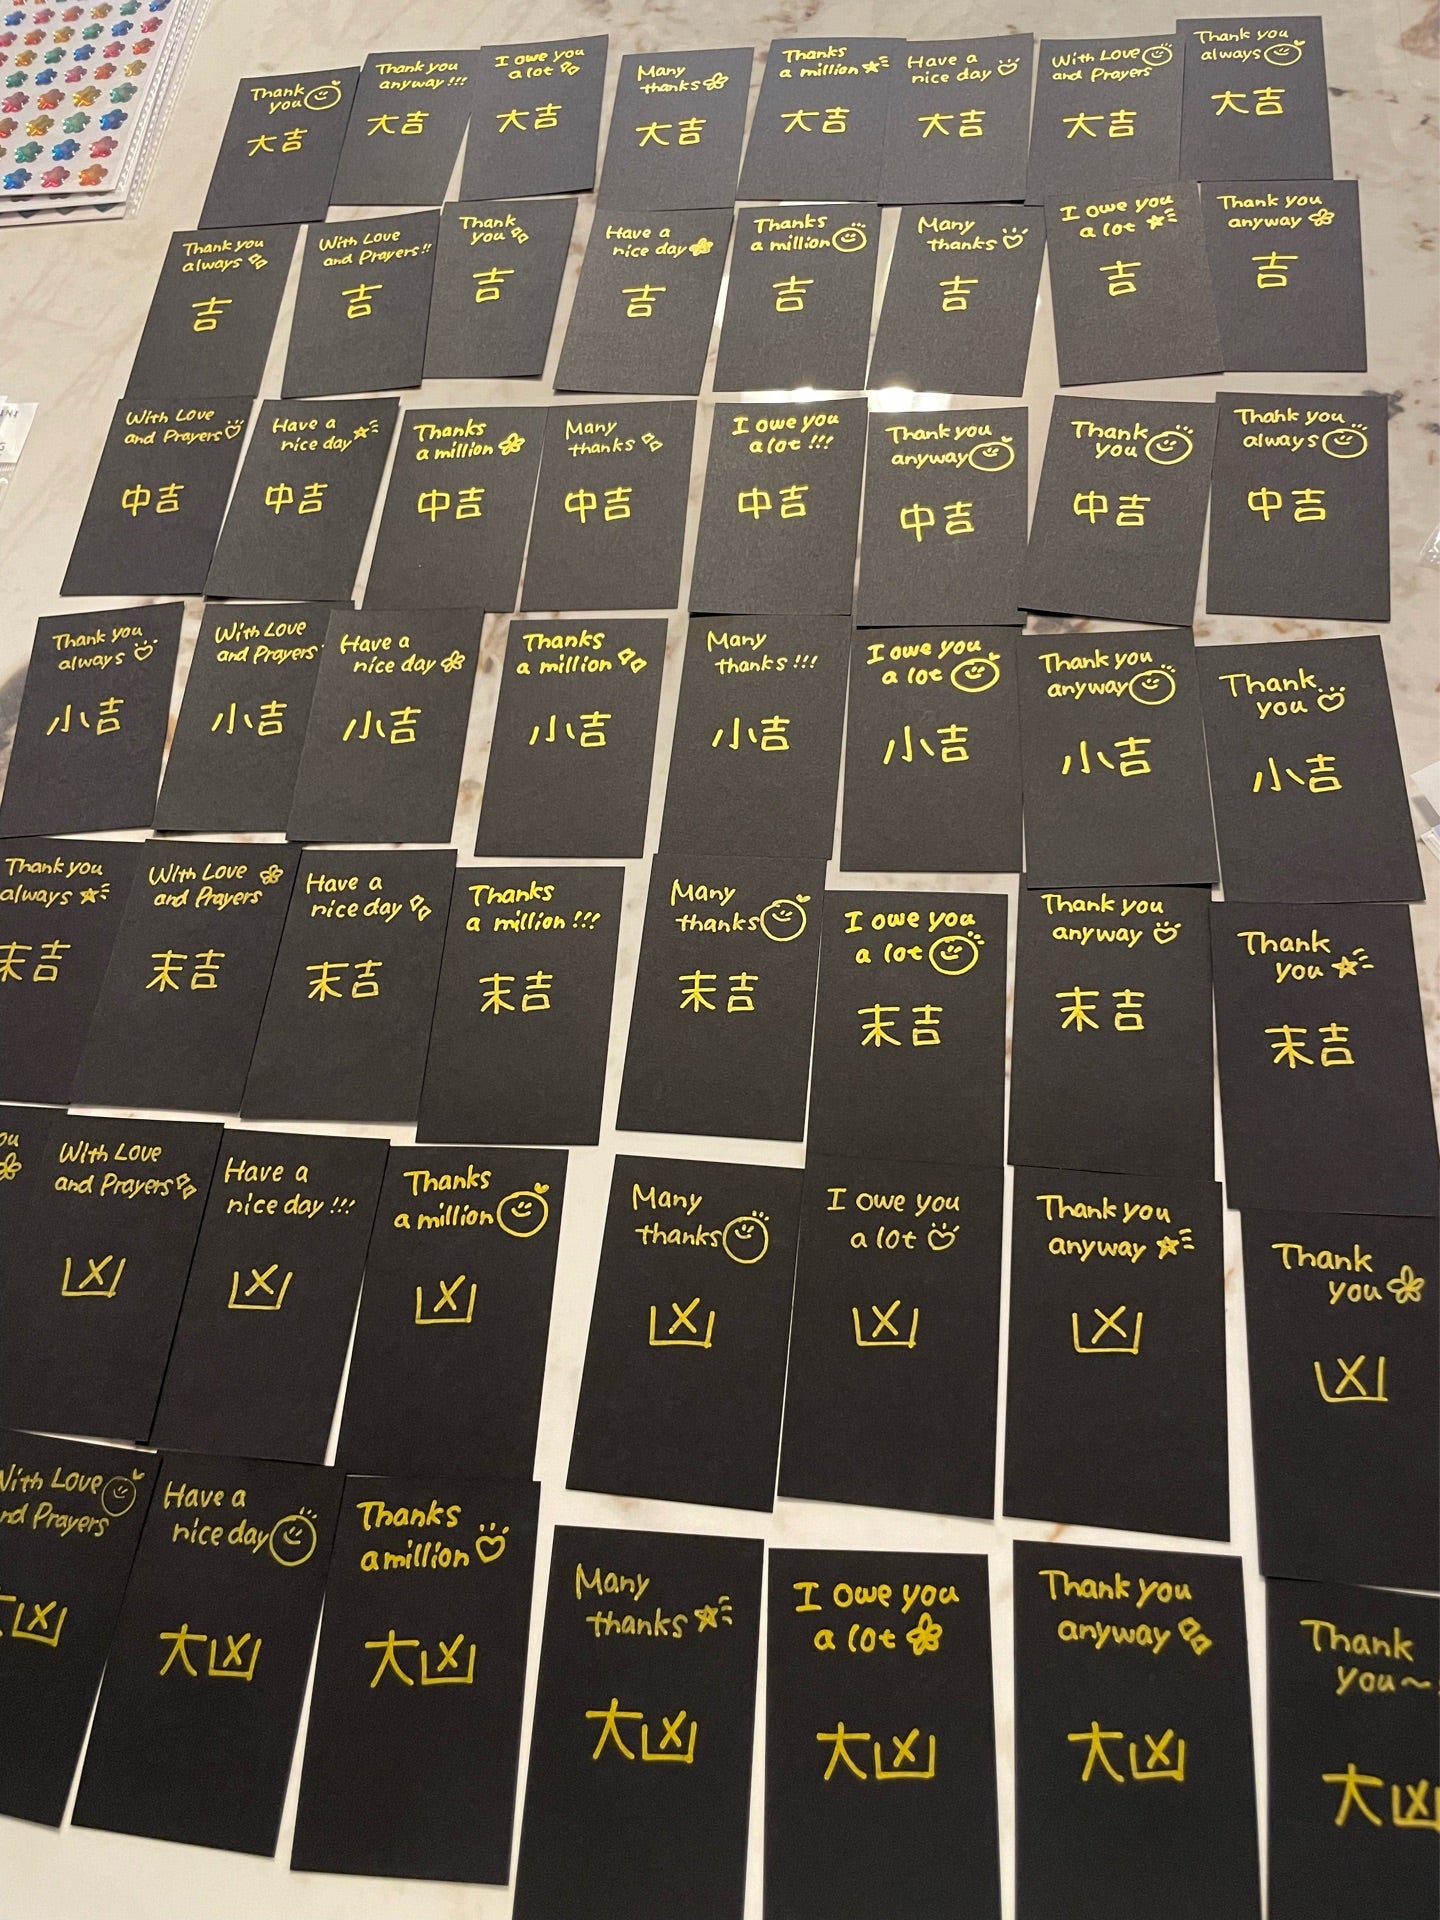 Thank
you
大吉
Thank you
anyway!!!
大吉
I owe you
a lot
大吉
Many
thanks
大吉
Thanks
a million
大吉
Have a
nice day
大吉
With Love
and Prayers
大吉
Thank you
always
大吉
Thank you
always
吉
With Love
and Prayers!!
吉
Thank
you
吉
Have a
nice day
吉
Thanks
a million
吉
Many
thanks
吉
I owe you
a lot
吉
Thank you
anyway
吉
With Love
and Prayers
中吉
Have a
nice day
中吉
Thanks
a million
中吉
Many
thanks
中吉
I owe you
a lot !!!
中吉
Thank you
anyway
中吉
Thank
you
中吉
Thank you
always
中吉
Thank you
always
小吉
With Love
and Prayers
小吉
Have a
nice day
小吉
Thanks
a million
小吉
Many
thanks !!!
小吉
I owe you
a lot
小吉
Thank you
anyway
小吉
Thank
you
小吉
Thank you
always
末吉
With Love
and Prayers
末吉
Have a
nice day
末吉
Thanks
a million !!!
末吉
Many
thanks
末吉
I owe you
a lot
末吉
Thank you
anyway
末吉
Thank
you
末吉
With Love
and Prayers
凶
Have a
nice day !!!
凶
Thanks
a million
凶
Many
thanks
凶
I owe you
a lot
凶
Thank you
anyway
凶
Thank
you
凶
With Love
and Prayers
大凶
Have a
nice day
大凶
Thanks
a million
大凶
Many
thanks
大凶
I owe you
a lot
大凶
Thank you
anyway
大凶
Thank
you～
大凶